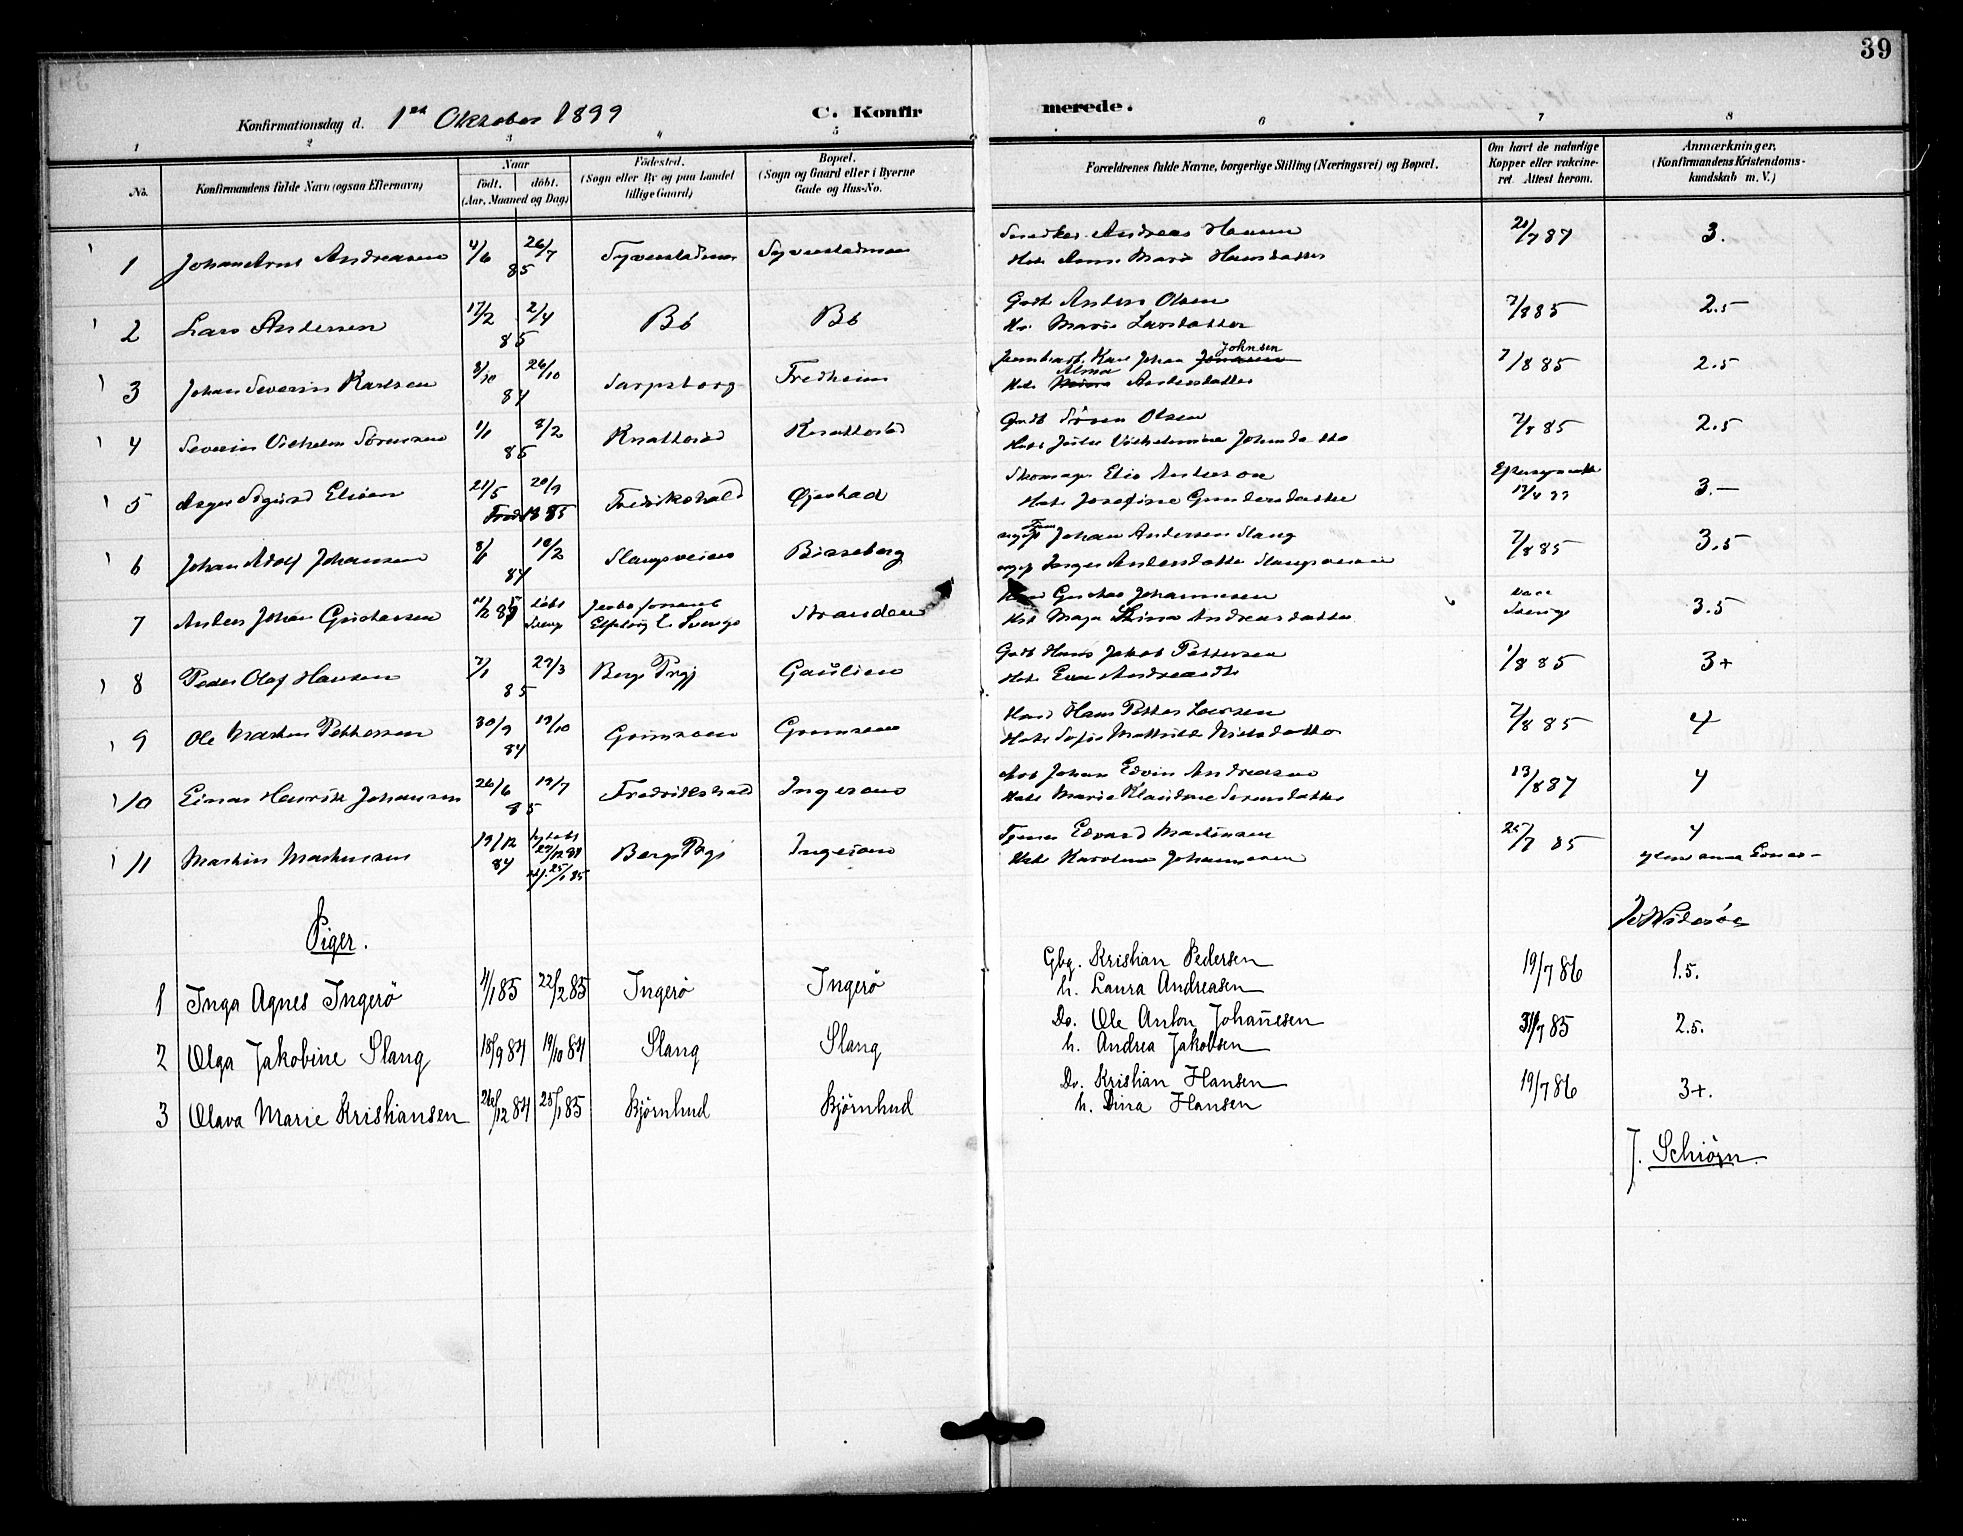 39
Konfirmationsdag d. 1ste Oktober 1899 C. Konfir merede.
1 2 3 4 5 6 7 8
No. Konfirmandens fulde Navn (ogsaa Efternavn) Naar født. døbt. (Aar, Maaned og Dag) Fødested. (Sogn eller By og paa Landet tillige Gaard) Bopæl. (Sogn og Gaard eller i Byerne Gade og Hus-No. Forældrenes fulde Navne, borgerlige Stilling (Næringsvei) og Bopæl. Om havt de naturlige Kopper eller vakcineret. Attest herom. Anmærkninger. (Konfirmandens Kristendomskundskab m. V.)
1 Johan Arnt Andreasen 4/6 26/7 85 Syverstadmoen Syverstadmoen Snedker Andreas Hansen
Hst. Anne Marie Hansdatter 21/7 87 3.
2 Lars Andersen 17/2 2/4 85 Bö Bö Gmdb Anders Olsen
Hst. Marie Larsdatter 7/8 85 2.5
3 Johan Severin Karlsen 3/10 26/10 84 Sarpsborg Fredheim Karl Johan Jonasen Johnsen
Hst. Alma Andersdatter 7/8 85 2.5
4 Severin Vilhelm Sørensen 1/1 8/2 85 Knattestad Knattestad Gmdb Søren Olsen
Hst. Julie Vilhelmine Johnsdatter 7/8 85 2.5
5 Asger Sigurd Eliasen 21/5 20/9 85 Fredrikshald Øjestad Skomager Elis Anderson
Hst. Josefine Gundersdatter 13/4 99 3.—
6 Johan Adolf Johansen 8/1 10/2 84 Slangsveien Bisseberg Johan Andersen Slang
Andersdatter Slangsveien 7/8 85 3.5
7 Anders Johan Gustavsen döbt Sverige Sverige Stranden Gustav Johannesen
Hst. Maja Stina Andreasdatter Sverige 3.5
8 Peder Olaf Hansen 7/1 29/3 85 Berg Prgj Gaulien Gmdb Hans Jakob Pettersen
Hst. Eva Andreasdt 1/8 85 3+
9 Ole Martin Pettersen 30/9 19/10 84 Grimsøen Grimsøen Hans Petter Larsen
Hst. Sofie Mathilde Nilsdatter 7/8 85 4
10 Einar Henrik Johansen 26/6 19/7 85 Fredrikshald Ingerøen Arb Johan Edvin Andreasen
Hst. Marie Klaudine Sørensdatter 13/8 87 4
11 Martin Martinsen 19/12 84 29/12 84 25/1 85 Berg Prgj Ingerøen Edvard Martinsen
Hst. Karoline Johannesen 25/7 85 4
Piger.
1 Inga Agnes Ingerö 4/1 85 22/2 85 Ingerö Ingerö Gbg. Kristian Pedersen
h. Laura Andreasen 19/7 86 1.5.
2 Olga Jakobine Slang 18/9 84 19/10 84 Slang Slang Do. Ole Anton Johañesen
h. Andrea Jakobsen 31/7 85 2.5.
3 Olava Marie Kristiansen 26/12 84 25/1 85 Bjørnhud Bjørnhud Do. Kristian Hansen
h. Dina Hansen 19/7 86 3+.
J. Schiörn